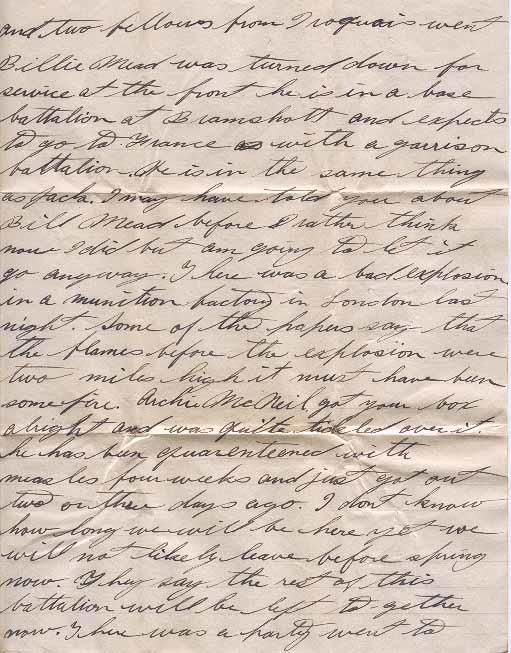 and two fellows from Iroquais went
Billie Mead was turned down for
service at the front he is in a base
battalion at Bramshott and expects
to go to France as with a garrison
battalion. He is in the same thing
as Jack. I may have told you about
Bill Mead before I rather think
now I did but am going to let it
go anyway. There was a bad explosion
in a munition factory in London last
night. Some of the papers say that
the flames before the explosion were
two miles high it must have been
some fire. Archie McNeil got your box
alright and was quite tickled over it.
he has been quarenteened with
measles four weeks and just got out
two or three days ago. I don't know
how long we will be here yet we
will not likely leave before spring
now. They say the rest of this
battalion will be left to-gether
now. There was a party went to